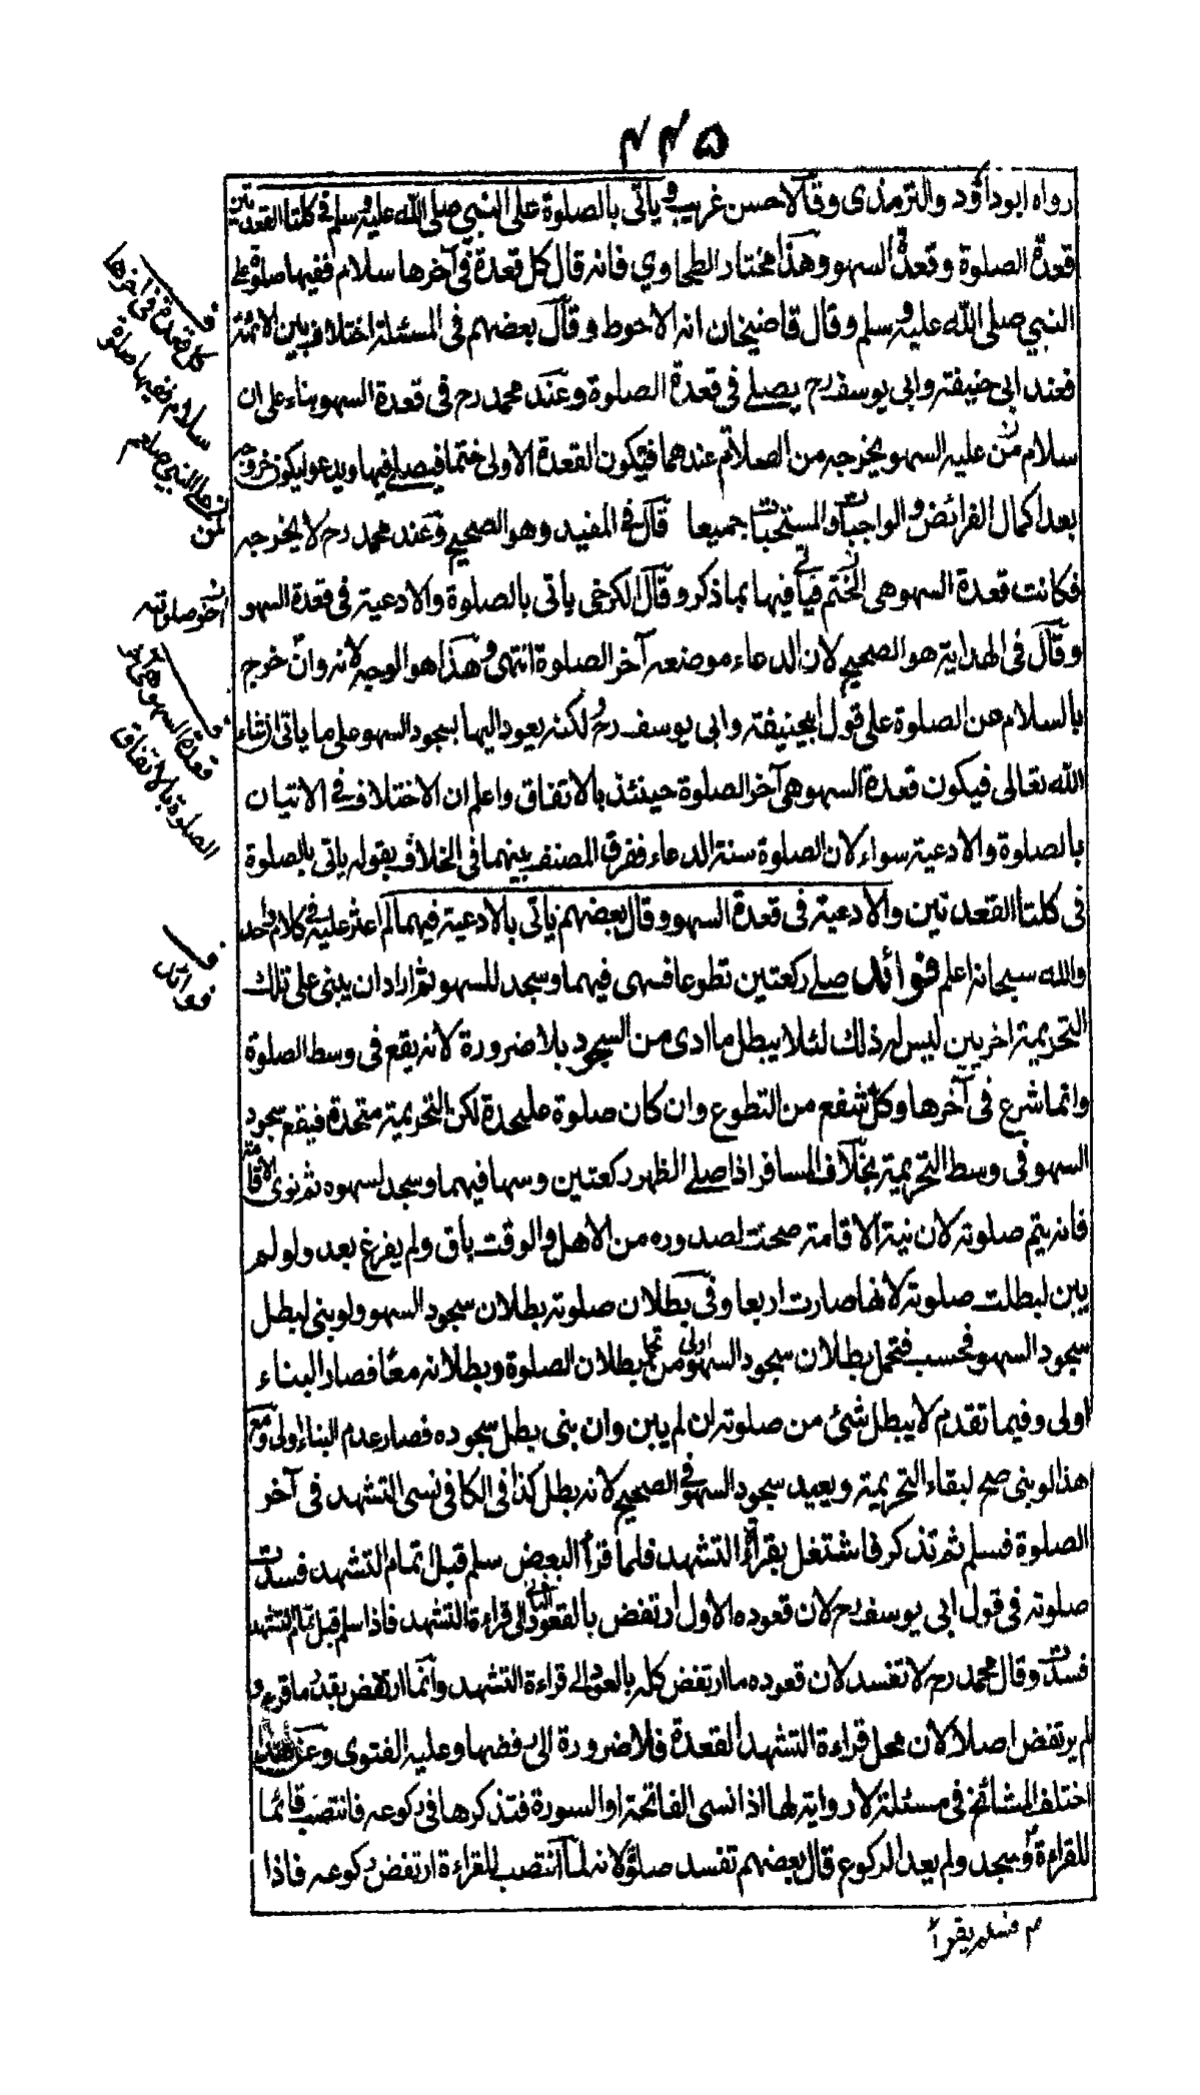 ٤٤٥
رواه ابو داؤد والترمذى وقالا حسن غريب وياتى بالصلوة على النبي صلى الله عليه وسلم فى كلتا القعدتين
قعدة الصلوة وقعدة السهو وهذا مختار الطحاوي فانه قال كل قعدة فى آخرها سلام ففيها صلوة على
النبي صلى الله عليه وسلم وقال قاضيخان انه الاحوط وقال بعضهم فى المسئلة اختلاف بين الائمة
فعند ابى حنيفة وابى يوسف رح يصلى فى قعدة الصلوة وعند محمد رح فى قعدة السهو بناء على ان
سلام من عليه السهو يخرجه من الصلاة عندهما فتكون القعدة الاولى ختما فيصلى فيها ويدعو ليكون خروجه
بعد اكمال الفرائض والواجبات والمستحبات جميعا قال فى المفيد وهو الصحيح وعند محمد رح لا يخرجه
فكانت قعدة السهو هى الختم فيأتى فيها بما ذكر وقال الكرخى ياتى بالصلوة والادعية فى قعدة السهو
وقال فى الهداية هو الصحيح لان الدعاء موضعه آخر الصلوة انتهى وهذا هو الوجه لانه وان خرج
بالسلام عن الصلوة على قول ابيحنيفة وابى يوسف رح لكنه يعود اليها بسجود السهو على ما ياتى انشاء
الله تعالى فيكون قعدة السهو هى آخر الصلوة حينئذ بالاتفاق واعلم ان الاختلاف فى الاتيان
بالصلوة والادعية سواء لان الصلوة سنة الدعاء ففرق المصنف بينهما فى الخلاف بقوله ياتى بالصلوة
فى كلتا القعدتين والادعية فى قعدة السهو وقال بعضهم ياتى بالادعية فيهما لم اعثر عليه فى كلام احد
والله سبحانه اعلم فوائد صلى ركعتين تطوعا فسهى فيهما وسجد للسهو ثم اراد ان يبنى على تلك
التحريمة اخريين ليس له ذلك لئلا يبطل ما ادى من السجود بلا ضرورة لانه يقع فى وسط الصلوة
وانما شرع فى آخرها وكل شفع من التطوع وان كان صلوة عليحدة لكن التحريمة متحدة فيقع سجود
السهو فى وسط التحريمة بخلاف المسافر اذا صلى الظهر ركعتين وسها فيهما وسجد لسهوه ثم نوى الاقامة
فانه يتم صلوته لان نية الاقامة صحت لصدوره من الاهل والوقت باق ولم يفرغ بعد ولو لم
يبن لبطلت صلوته لانها صارت اربعا وفى بطلان صلوته بطلان سجود السهو ولو بنى لبطل
سجود السهو فحسب فتحمل بطلان سجود السهو اولى من تحمل بطلان الصلوة وبطلانه معًا فصار البناء
اولى وفيما تقدم لا يبطل شئ من صلوته ان لم يبن وان بنى يبطل سجوده فصار عدم البناء اولى ومع
هذا لو بنى صح لبقاء التحريمة ويعيد سجود السهو فى الصحيح لانه بطل كذا فى الكافى نسى التشهد فى آخر
الصلوة فسلم ثم تذكر فاشتغل بقراءة التشهد فلما قرأ البعض سلم قبل تمام التشهد فسدت
صلوته فى قول ابى يوسف رح لان قعوده الاول ارتفض بالعود الى قراءة التشهد فاذا سلم قبل تمام التشهد
فسدت وقال محمد رح لا تفسد لان قعوده ما ارتفض كله بالعود الى قراءة التشهد وانما ارتفض بقدر ما قرء
لم يرتفض اصلا لان محل قراءة التشهد القعدة فلا ضرورة الى رفضها وعليه الفتوى وعن هذا
اختلف المشائخ فى مسئلة لا رواية لها اذا نسى الفاتحة او السورة فتذكرها فى ركوعه فانتصب قائما
للقراءة وسجد ولم يعد الركوع قال بعضهم تفسد صلوته لانه لما انتصب للقراءة ارتفض ركوعه فاذا
كل قعدة فى اخرها
سلام ففيها صلوة
على النبي صلعم
قعدة السهو هى آخر
الصلوة بالاتفاق
فوائد